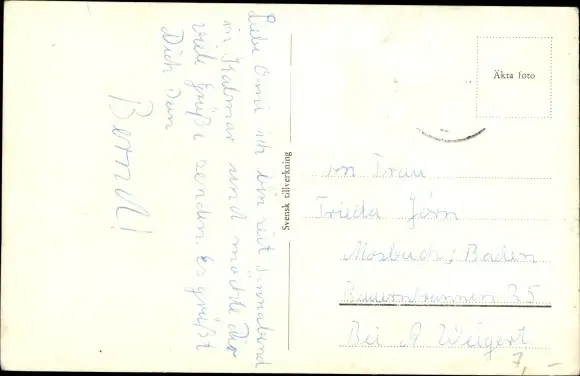 Liebe Omi ich bin seit Sonnabend
in Kalmar und möchte Dir
viele Grüße senden. Es grüßt
Dich Dein
Bernd!
Svensk tillverkning
Äkta foto
an Frau
Frieda Jörn
Mosbach, Baden
Bauernbrunnen 25
Bei A Weigert
7,-